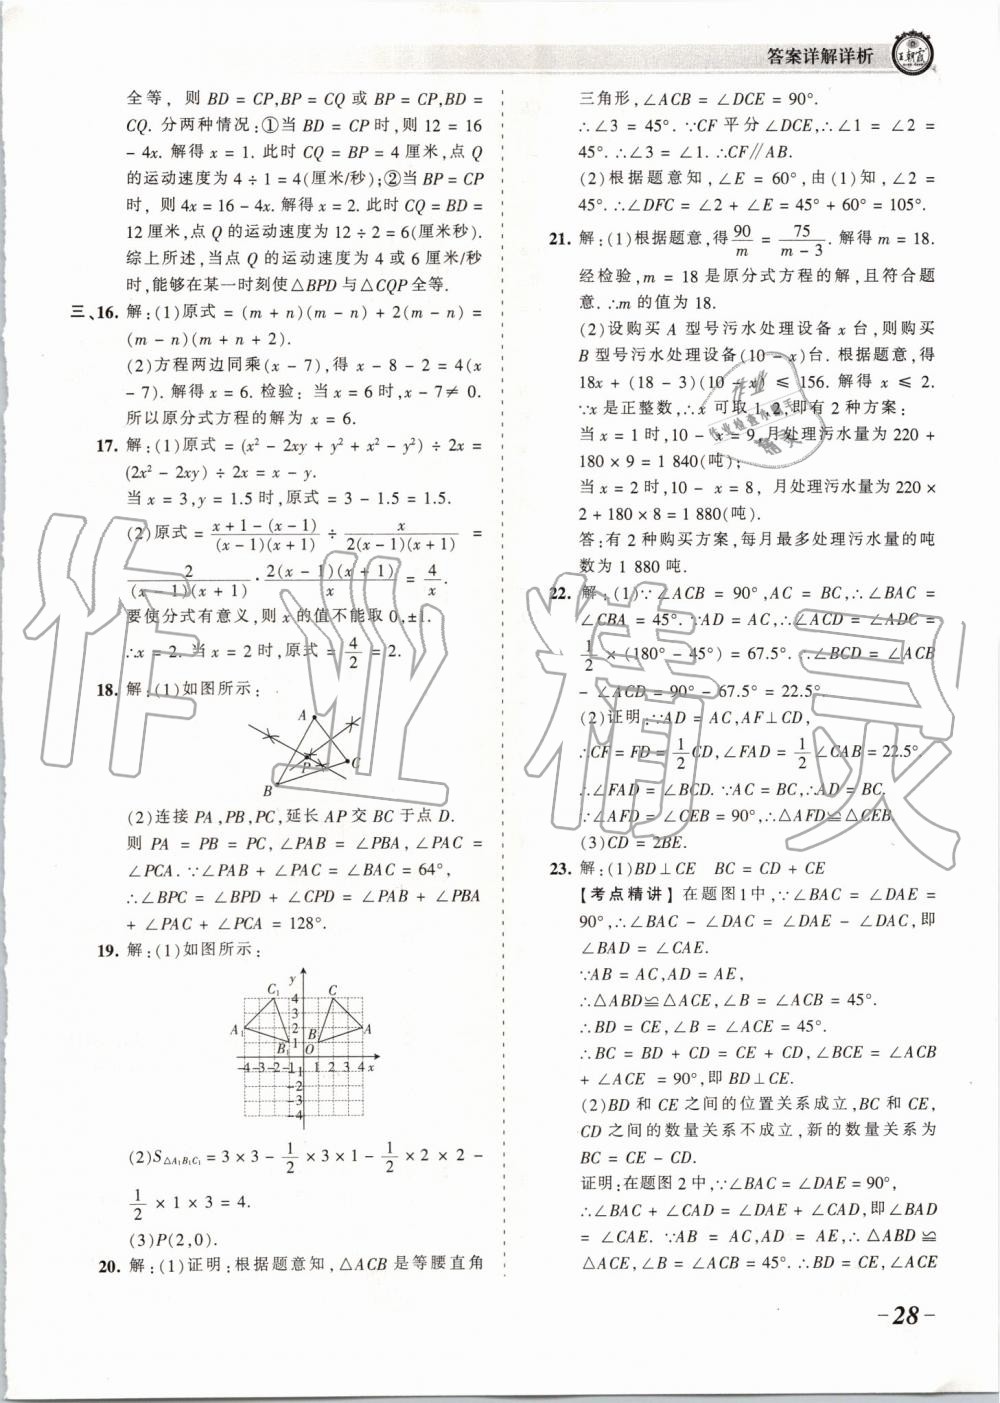 答案详解详析
王朝霞
全等，则 BD = CP,BP = CQ 或 BP = CP,BD =
CQ. 分两种情况:①当 BD = CP 时,则 12 = 16
- 4x. 解得 x = 1. 此时 CQ = BP = 4 厘米,点 Q
的运动速度为 4 ÷ 1 = 4(厘米/秒);②当 BP = CP
时，则 4x = 16 - 4x. 解得 x = 2. 此时 CQ = BD =
12 厘米,点 Q 的运动速度为 12 ÷ 2 = 6(厘米秒).
综上所述,当点 Q 的运动速度为 4 或 6 厘米/秒
时,能够在某一时刻使△BPD 与△CQP 全等.
三、16. 解:(1)原式 = (m + n)(m - n) + 2(m - n) =
(m - n)(m + n + 2).
(2)方程两边同乘(x - 7),得 x - 8 - 2 = 4(x
- 7). 解得 x = 6. 检验：当 x = 6 时,x - 7 ≠ 0.
所以原分式方程的解为 x = 6.
17. 解:(1)原式 = (x² - 2xy + y² + x² - y²) ÷ 2x =
(2x² - 2xy) ÷ 2x = x - y.
当 x = 3,y = 1.5 时,原式 = 3 - 1.5 = 1.5.
(2)原式 = (x + 1 - (x - 1))/((x - 1)(x + 1)) ÷ x/(2(x - 1)(x + 1)) =
2/((x - 1)(x + 1)) · 2(x - 1)(x + 1)/x = 4/x.
要使分式有意义,则 x 的值不能取 0,±1.
∴x = 2. 当 x = 2 时,原式 = 4/2 = 2.
18. 解:(1)如图所示:
A
P
C
B
(2)连接 PA,PB,PC,延长 AP 交 BC 于点 D.
则 PA = PB = PC,∠PAB = ∠PBA,∠PAC =
∠PCA. ∵∠PAB + ∠PAC = ∠BAC = 64°,
∴∠BPC = ∠BPD + ∠CPD = ∠PAB + ∠PBA
+ ∠PAC + ∠PCA = 128°.
19. 解:(1)如图所示:
y
C₁ 4 C
3
A₁ 2 B A
B₁ 1
O
-4 -3 -2 -1 1 2 3 4 x
-1
-2
-3
-4
(2)S△A₁B₁C₁ = 3 × 3 - 1/2 × 3 × 1 - 1/2 × 2 × 2 -
1/2 × 1 × 3 = 4.
(3)P(2,0).
20. 解:(1)证明:根据题意知,△ACB 是等腰直角
三角形,∠ACB = ∠DCE = 90°.
∴∠3 = 45°. ∵CF 平分∠DCE,∴∠1 = ∠2 =
45°. ∴∠3 = ∠1. ∴CF∥AB.
(2)根据题意知,∠E = 60°,由(1)知,∠2 =
45°. ∴∠DFC = ∠2 + ∠E = 45° + 60° = 105°.
21. 解:(1)根据题意,得90/m = 75/(m - 3). 解得 m = 18.
经检验,m = 18 是原分式方程的解,且符合题
意. ∴m 的值为 18.
(2)设购买 A 型号污水处理设备 x 台,则购买
B 型号污水处理设备(10 - x)台. 根据题意,得
18x + (18 - 3)(10 - x) ≤ 156. 解得 x ≤ 2.
∵x 是正整数,∴x 可取 1,2,即有 2 种方案:
当 x = 1 时,10 - x = 9,月处理污水量为 220 +
180 × 9 = 1 840(吨);
当 x = 2 时,10 - x = 8，月处理污水量为 220 ×
2 + 180 × 8 = 1 880(吨).
答:有 2 种购买方案,每月最多处理污水量的吨
数为 1 880 吨.
22. 解:(1)∵∠ACB = 90°,AC = BC,∴∠BAC =
∠CBA = 45°. ∵AD = AC,∴∠ACD = ∠ADC =
1/2 × (180° - 45°) = 67.5°. ∴∠BCD = ∠ACB
- ∠ACD = 90° - 67.5° = 22.5°.
(2)证明:∵AD = AC,AF⊥CD,
∴CF = FD = 1/2 CD,∠FAD = 1/2 ∠CAB = 22.5°.
∴∠FAD = ∠BCD. ∵AC = BC,∴AD = BC.
∵∠AFD = ∠CEB = 90°,∴△AFD≌△CEB.
(3)CD = 2BE.
23. 解:(1)BD⊥CE BC = CD + CE
【考点精讲】在题图1中,∵∠BAC = ∠DAE =
90°,∴∠BAC - ∠DAC = ∠DAE - ∠DAC,即
∠BAD = ∠CAE.
∵AB = AC,AD = AE,
∴△ABD≌△ACE,∠B = ∠ACB = 45°.
∴BD = CE,∠B = ∠ACE = 45°.
∴BC = BD + CD = CE + CD,∠BCE = ∠ACB
+ ∠ACE = 90°,即 BD⊥CE.
(2)BD 和 CE 之间的位置关系成立,BC 和 CE,
CD 之间的数量关系不成立,新的数量关系为
BC = CE - CD.
证明:在题图 2 中,∵∠BAC = ∠DAE = 90°,
∴∠BAC + ∠CAD = ∠DAE + ∠CAD,即∠BAD
= ∠CAE. ∵AB = AC,AD = AE,∴△ABD≌
△ACE,∠B = ∠ACB = 45°. ∴BD = CE,∠ACE
-28-
作业精灵